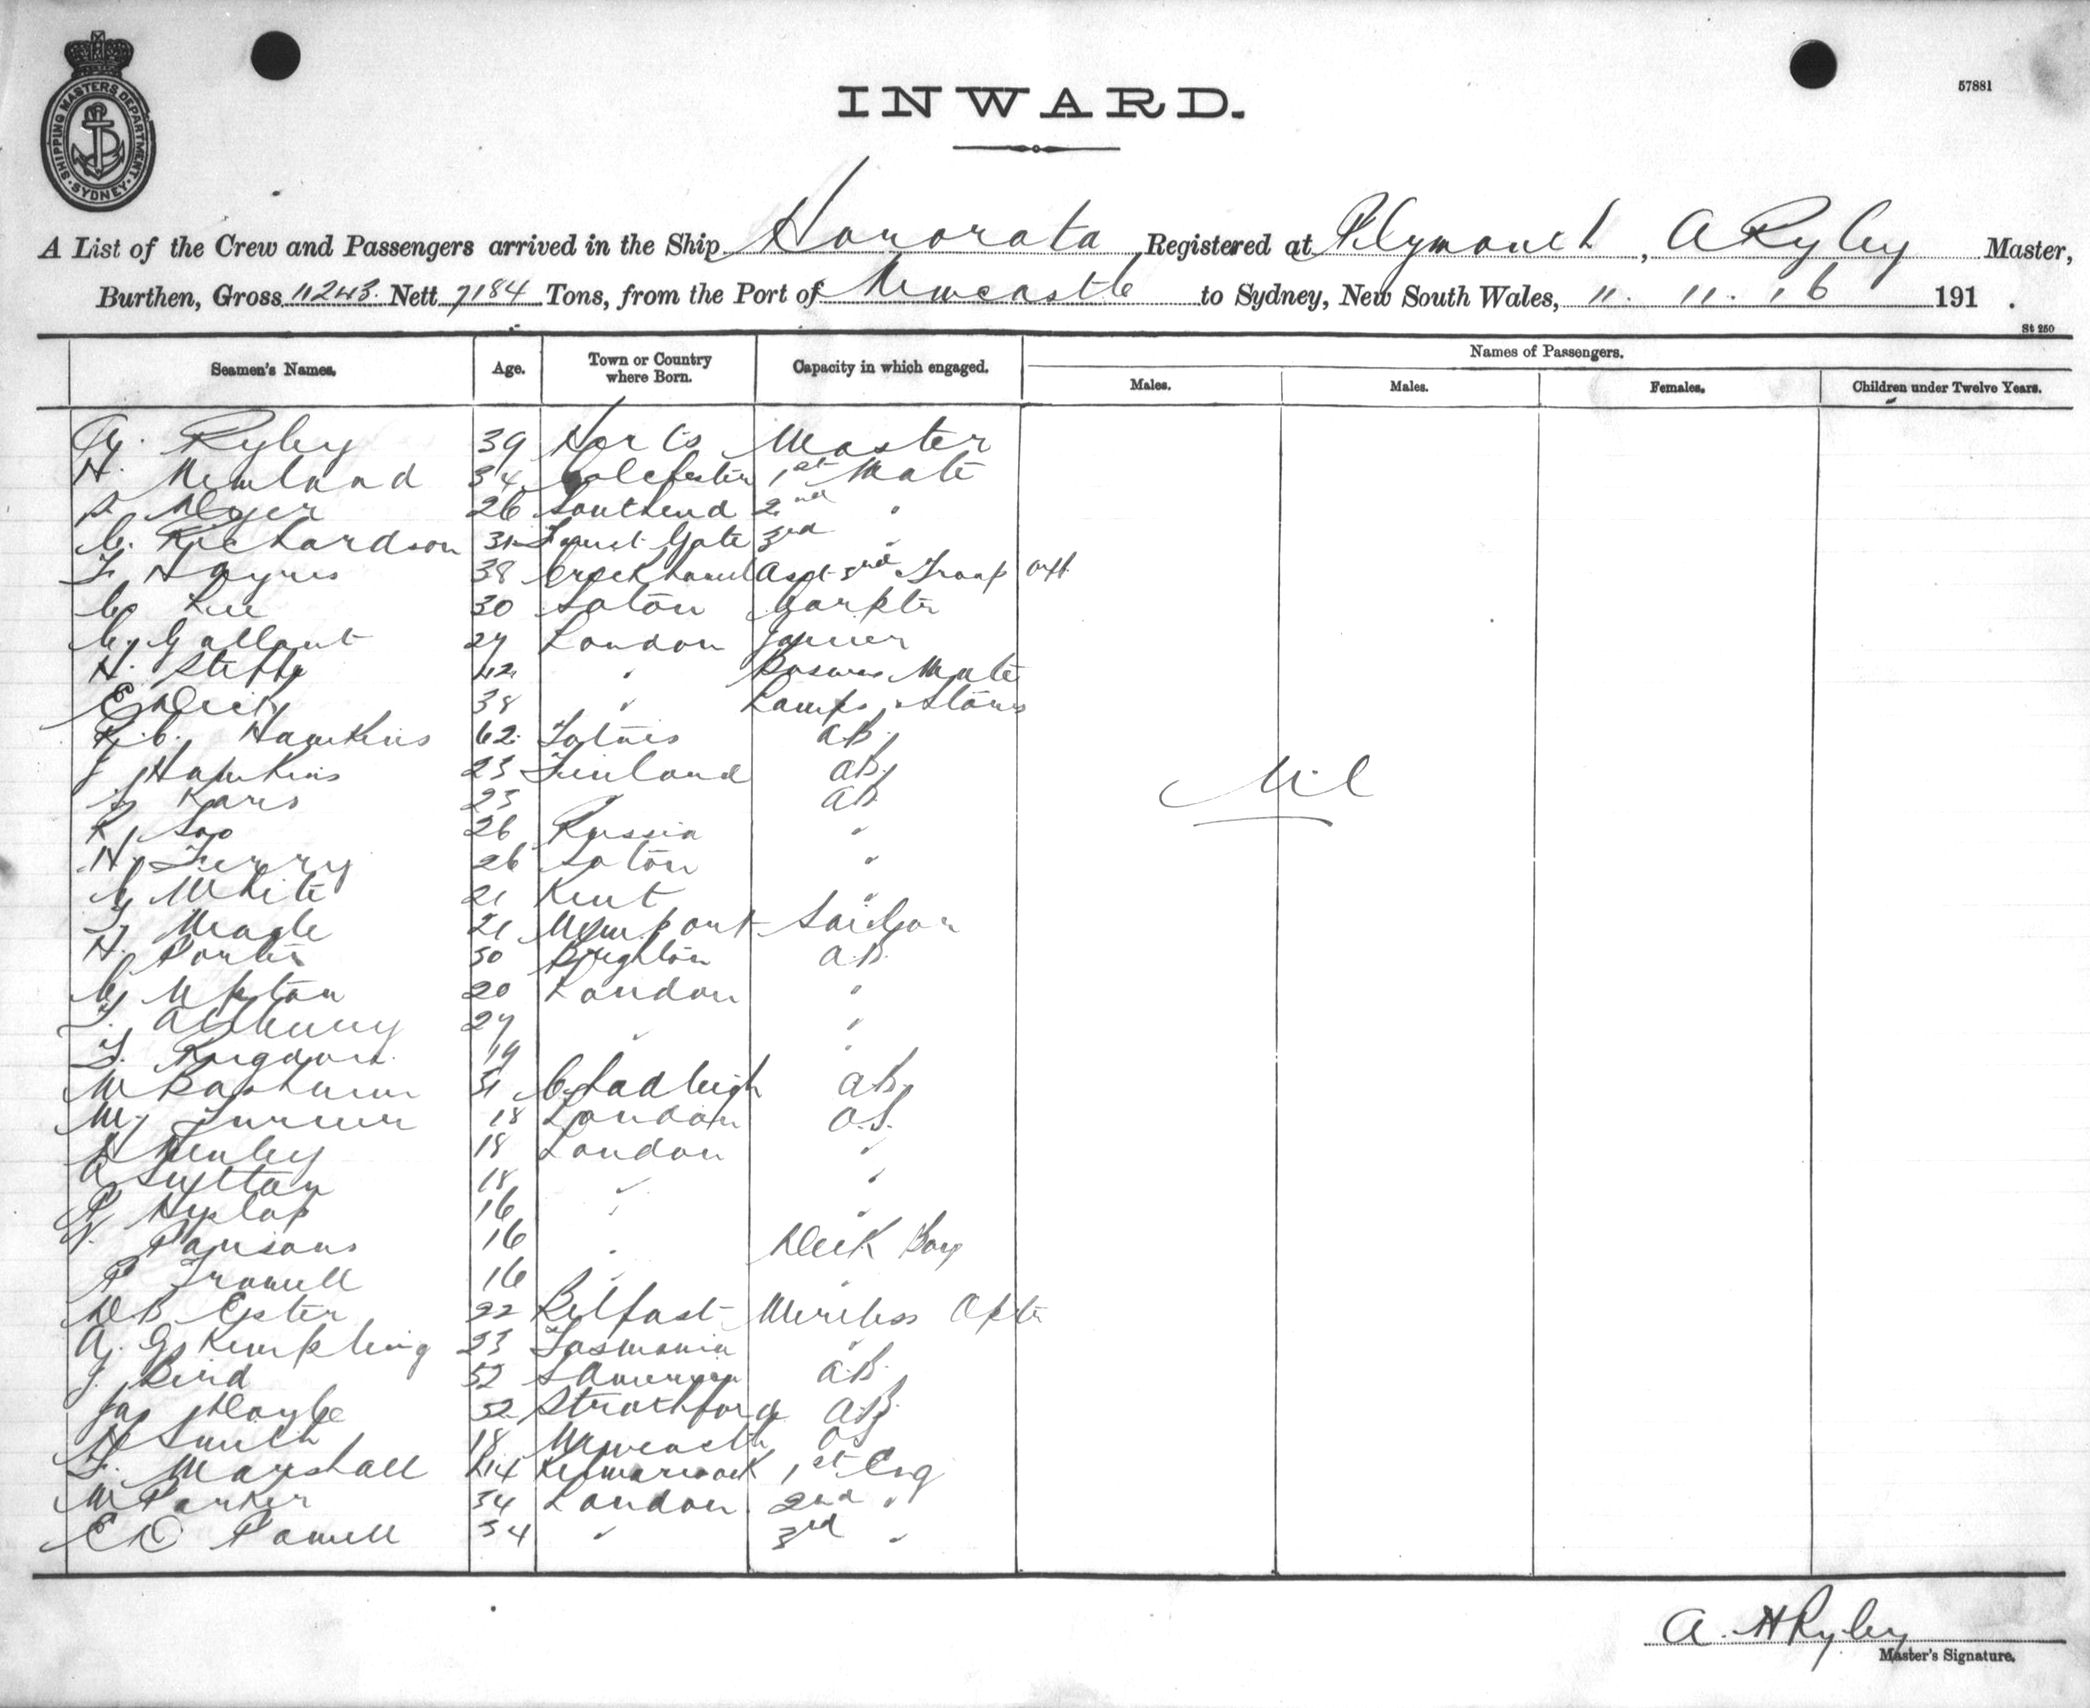 SHIPPING MASTERS DEPARTMENT. SYDNEY
57881
INWARD.
A List of the Crew and Passengers arrived in the Ship Honorata Registered at Plymouth, A Ryley Master,
Burthen, Gross 11243. Nett 7184 Tons, from the Port of Newcastle to Sydney, New South Wales, 11. 11. 16 191 .
St 250
Seamen's Names. Age. Town or Country where Born. Capacity in which engaged. Names of Passengers.
Males. Males. Females. Children under Twelve Years.
A. Ryley 39 Herts Master
H. Newland 34 Colchester 1st Mate
26 Southend 2nd "
C. Richardson 31 Forest Gate 3rd "
F Haynes 38 Asst 3rd Troop Off
C Lee 30 Soton Carptr
C. Gallant 27 London Joiner
H. 42 " Bosuns Mate
E Dick 38 " Lamps & Stores
R.C. Hawkins 62 Totnes AB
J Hawkins 23 Finland AB
Kars 23 " AB
R. Soo 26 Russia "
H. Terry 26 Soton "
G White 21 Kent "
T Neagle 21 Newport Sailor
H. Porter 30 Brighton A.B.
C Upton 20 London "
T. Anthony 27 " "
T. Kingdon 19 " "
W Bashum 31 Chadleigh AB
W. Turner 18 London O.S.
H Henley 18 London "
A Sutton 18 " "
P Hyslop 16 " "
V. Parsons 16 " Deck Boy
P Trowell 16 " "
D B Ester 22 Belfast Wireless Optr
A. G. Kempling 23 Tasmania "
J. Bird 52 S America A.B.
Jas Doyle 52 Strathford A.B.
H Smith 18 Newcastle OS
F. Marshall 44 Kilmarnock 1st Eng
W Parker 34 London 2nd "
E D Powell 34 " 3rd "
Nil
A. H Ryley
Master's Signature.